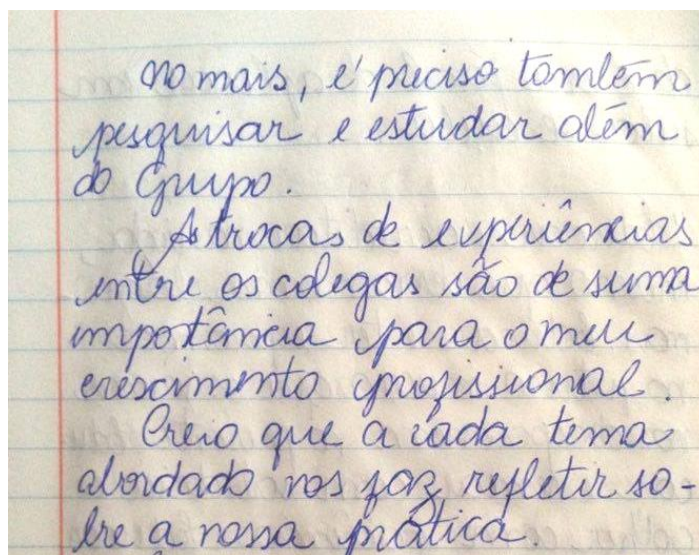 No mais, é preciso também
pesquisar e estudar além
do Grupo.
As trocas de experiências
entre os colegas são de suma
importância para o meu
crescimento profissional.
Creio que a cada tema
abordado nos faz refletir so-
bre a nossa prática.